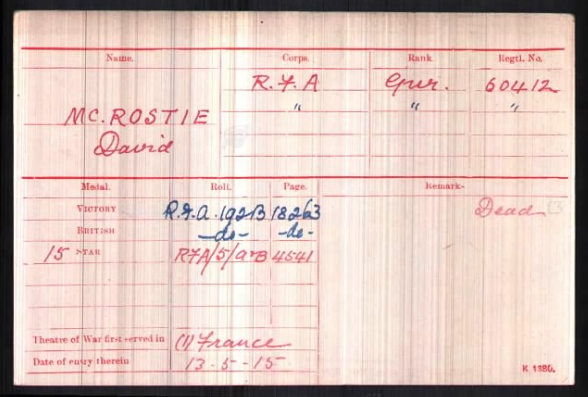 Name. Corps. Rank. Regtl. No.
R.F.A Gnr. 60412
" " "
MC.ROSTIE
David
Medal. Roll. Page. Remarks
VICTORY R.F.A. 192B 18263 Dead
BRITISH -do- -do-
15 STAR RFA/5/ 4541
Theatre of War first served in (1) France
Date of entry therein 13-5-15
K 1380.